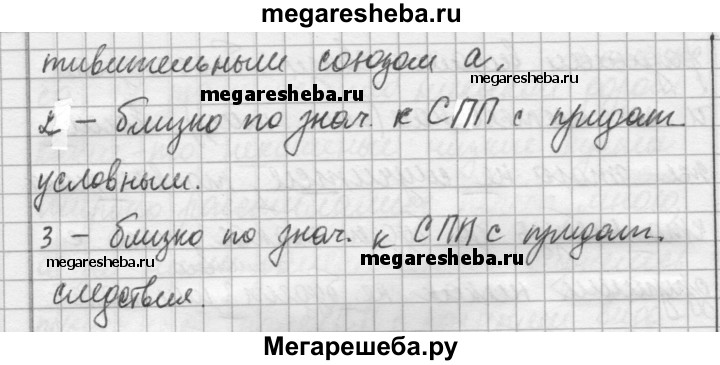 megaresheba.ru
тивительным союзом а.
megaresheba.ru
megaresheba.ru
2 – близко по знач. к СПП с придат.
условным.
3 – близко по знач. к СПП с придат.
megaresheba.ru
megaresheba.ru
следствия.
Мегарешеба.ру